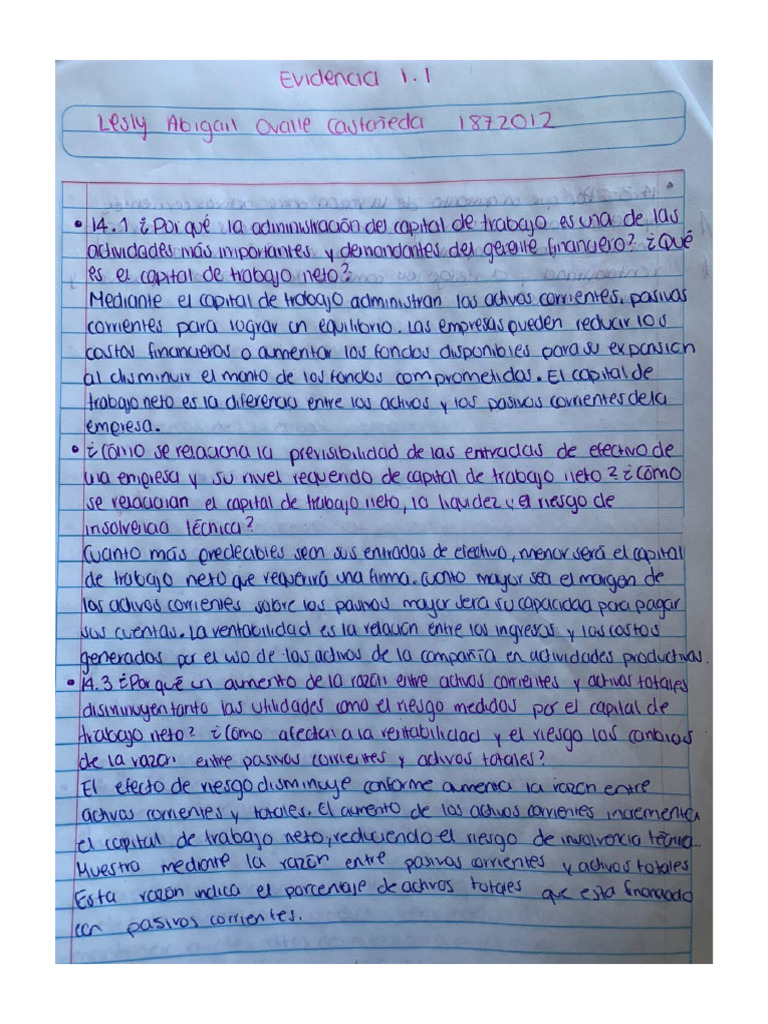 Evidencia 1.1
Lesly Abigail Ovalle Castañeda 1872012
• 14.1 ¿Por qué la administración del capital de trabajo es una de las
actividades más importantes y demandantes del gerente financiero? ¿Qué
es el capital de trabajo neto?
Mediante el capital de trabajo administran los activos corrientes, pasivos
corrientes para lograr un equilibrio. Las empresas pueden reducir los
costos financieros o aumentar los fondos disponibles para su expansión
al disminuir el monto de los fondos comprometidos. El capital de
trabajo neto es la diferencia entre los activos y los pasivos corrientes de la
empresa.
• ¿Cómo se relaciona la previsibilidad de las entradas de efectivo de
una empresa y su nivel requerido de capital de trabajo neto? ¿Cómo
se relacionan el capital de trabajo neto, la liquidez y el riesgo de
insolvencia técnica?
Cuanto más predecibles sean sus entradas de efectivo, menor será el capital
de trabajo neto que requerirá una firma. Cuanto mayor sea el margen de
los activos corrientes sobre los pasivos mayor será su capacidad para pagar
sus cuentas. La rentabilidad es la relación entre los ingresos y los costos
generados por el uso de los activos de la compañía en actividades productivas.
• 14.3 ¿Por qué un aumento de la razón entre activos corrientes y activos totales
disminuyen tanto las utilidades como el riesgo medidos por el capital de
trabajo neto? ¿Cómo afectan a la rentabilidad y el riesgo los cambios
de la razón entre pasivos corrientes y activos totales?
El efecto de riesgo disminuye conforme aumenta la razón entre
activos corrientes y totales. El aumento de los activos corrientes incrementa
el capital de trabajo neto, reduciendo el riesgo de insolvencia técnica.
Muestra mediante la razón entre pasivos corrientes y activos totales
Esta razón indica el porcentaje de activos totales que esta financiado
con pasivos corrientes.